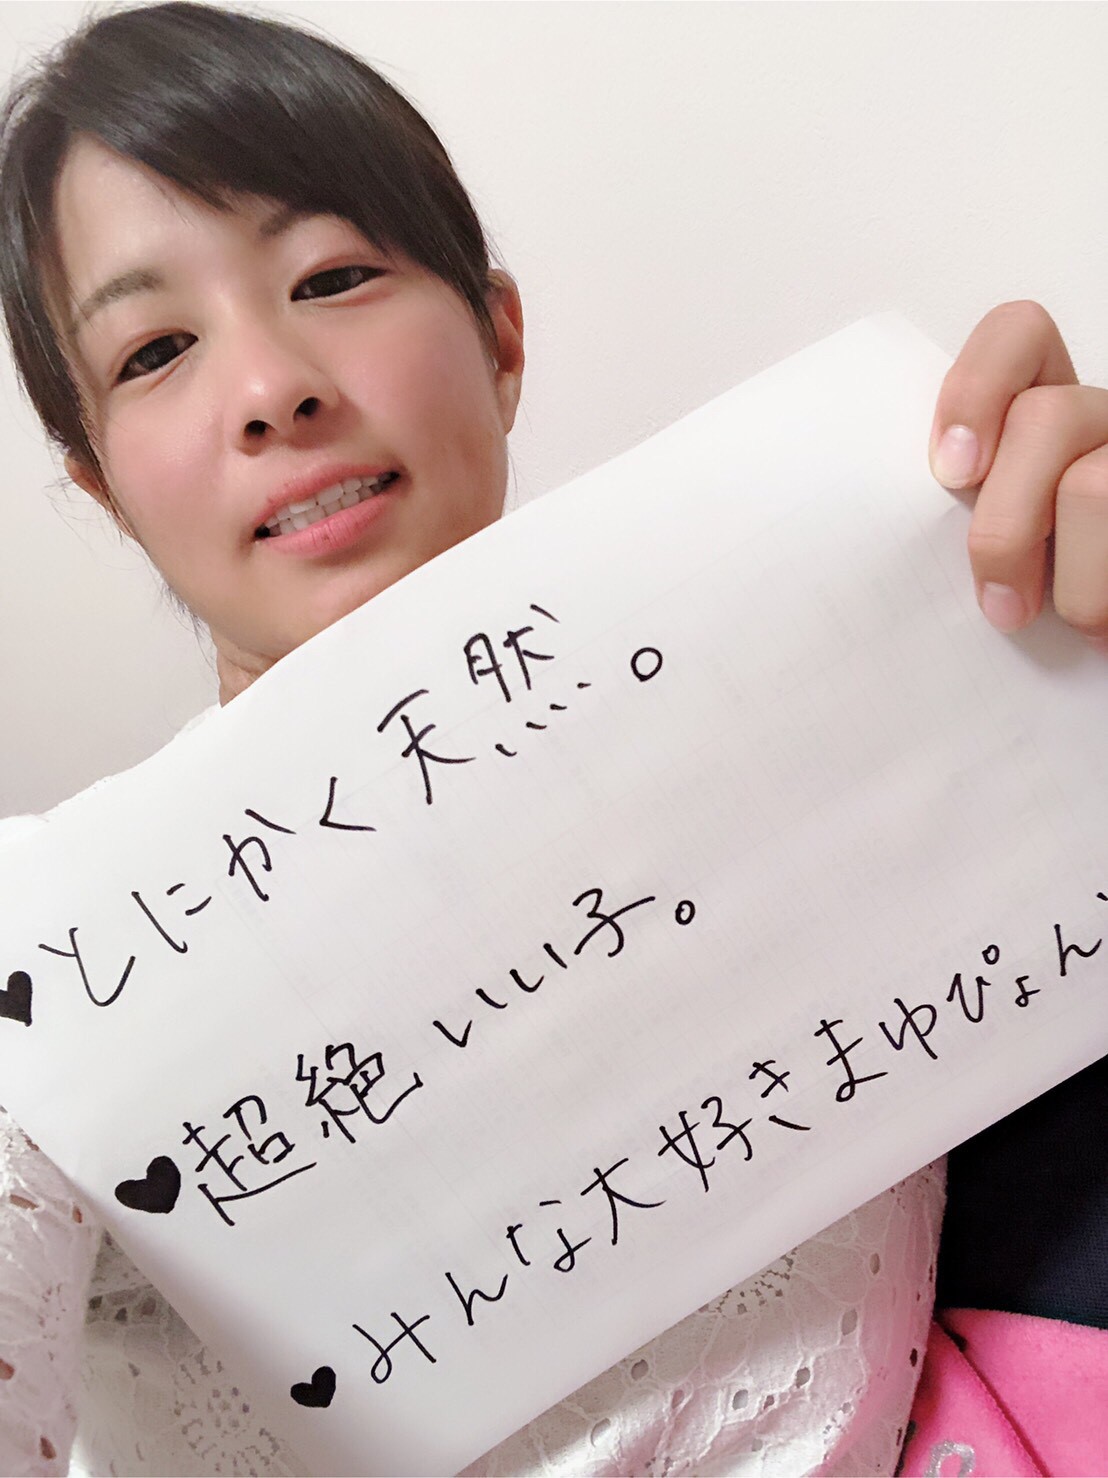 ♥とにかく天然。
♥超絶いい子。
♥みんな大好きまゆぴょん